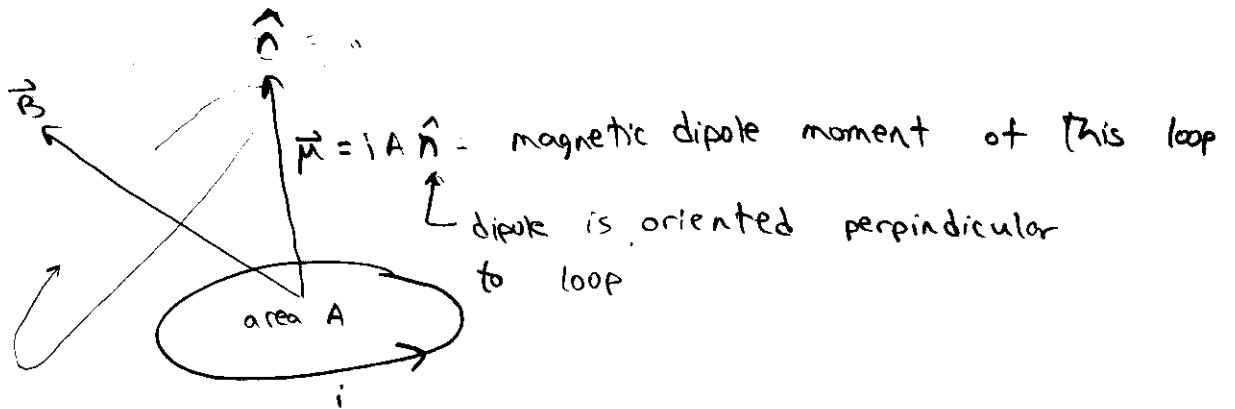 n̂
B⃗
μ⃗ = i A n̂ - magnetic dipole moment of this loop
dipole is oriented perpindicular
to loop
area A
i